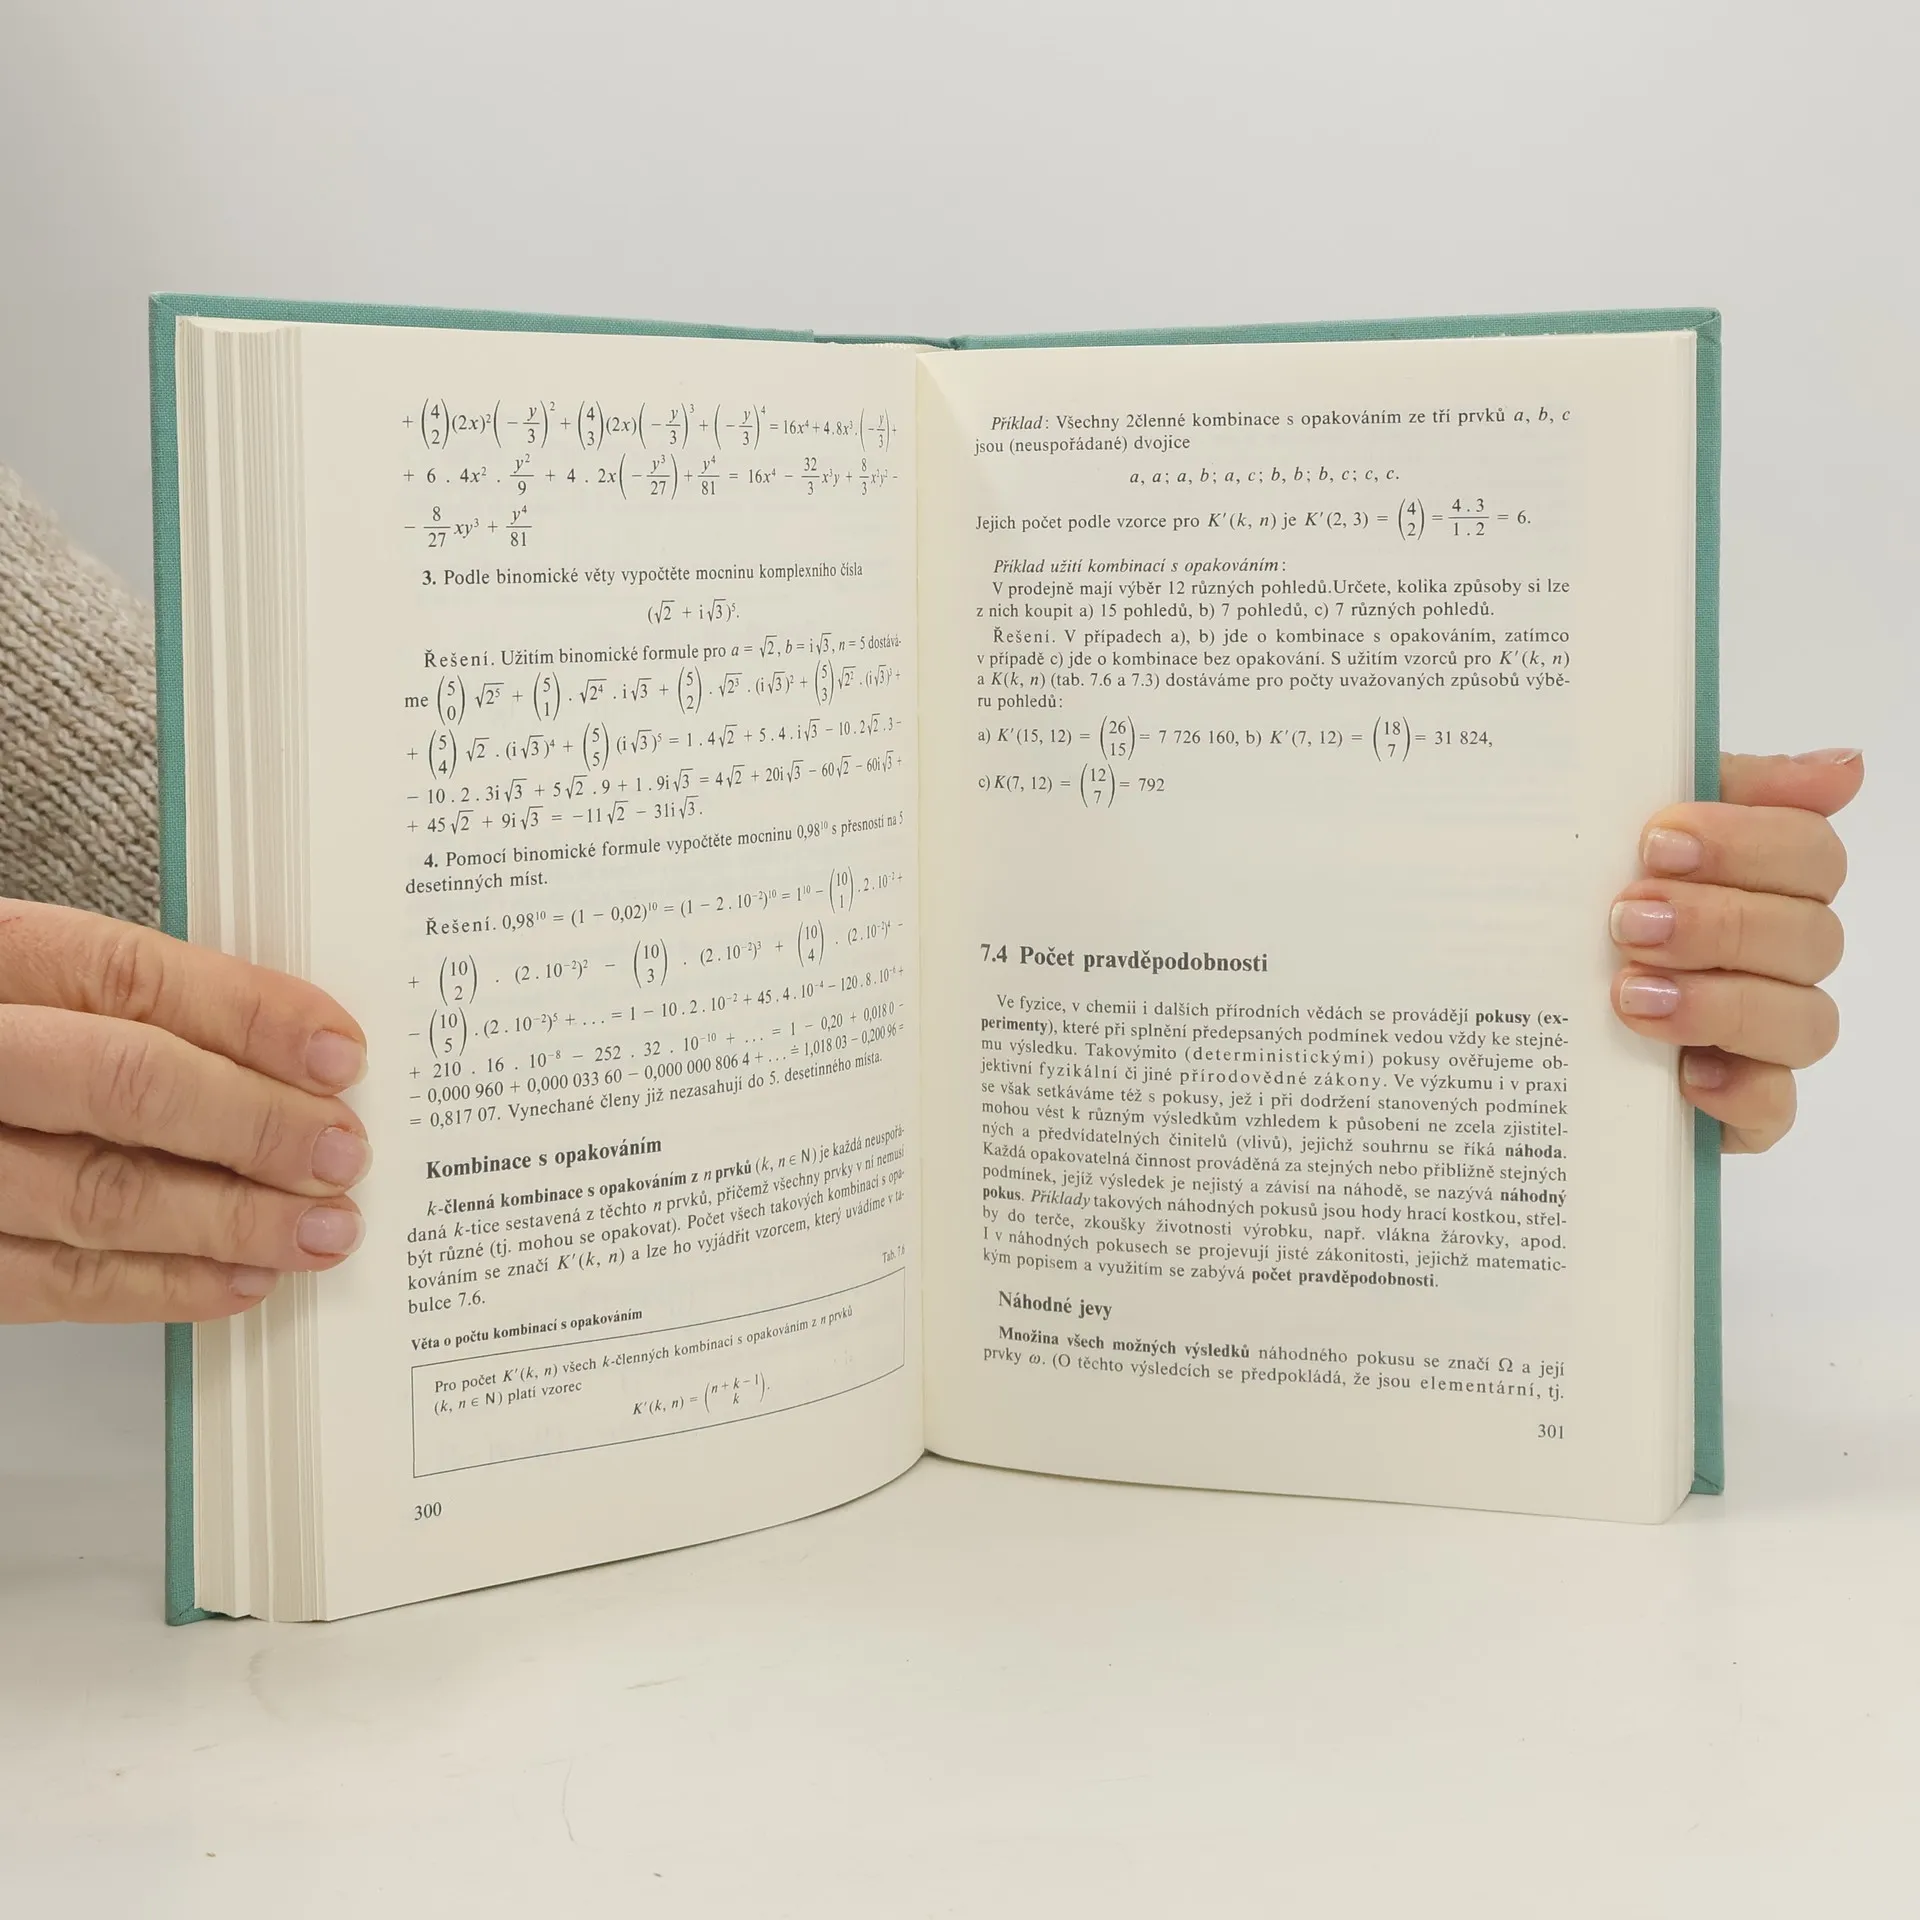 + (4 2)(2x)²(− y/3)² + (4 3)(2x)(− y/3)³ + (− y/3)⁴ = 16x⁴ + 4.8x³.(− y/3) +
+ 6 . 4x² . y²/9 + 4 . 2x(− y³/27) + y⁴/81 = 16x⁴ − 32/3 x³y + 8/3 x²y² −
− 8/27 xy³ + y⁴/81
3. Podle binomické věty vypočtěte mocninu komplexního čísla
(√2 + i√3)⁵.
Řešení. Užitím binomické formule pro a = √2, b = i√3, n = 5 dostává-
me (5 0) √2⁵ + (5 1) . √2⁴ . i√3 + (5 2) . √2³ . (i√3)² + (5 3) √2² . (i√3)³ +
+ (5 4) √2 . (i√3)⁴ + (5 5) (i√3)⁵ = 1 . 4√2 + 5 . 4 . i√3 − 10 . 2√2 . 3 −
− 10 . 2 . 3i√3 + 5√2 . 9 + 1 . 9i√3 = 4√2 + 20i√3 − 60√2 − 60i√3 +
+ 45√2 + 9i√3 = −11√2 − 31i√3.
4. Pomocí binomické formule vypočtěte mocninu 0,98¹⁰ s přesností na 5
desetinných míst.
Řešení. 0,98¹⁰ = (1 − 0,02)¹⁰ = (1 − 2 . 10⁻²)¹⁰ = 1¹⁰ − (10 1) . 2 . 10⁻² +
+ (10 2) . (2 . 10⁻²)² − (10 3) . (2 . 10⁻²)³ + (10 4) . (2 . 10⁻²)⁴ −
− (10 5) . (2 . 10⁻²)⁵ + ... = 1 − 10 . 2 . 10⁻² + 45 . 4 . 10⁻⁴ − 120 . 8 . 10⁻⁶ +
+ 210 . 16 . 10⁻⁸ − 252 . 32 . 10⁻¹⁰ + ... = 1 − 0,20 + 0,018 0 −
− 0,000 960 + 0,000 033 60 − 0,000 000 806 4 + ... ≐ 1,018 03 − 0,200 96 =
= 0,817 07. Vynechané členy již nezasahují do 5. desetinného místa.
Kombinace s opakováním
k-členná kombinace s opakováním z n prvků (k, n ∈ N) je každá neuspořá-
daná k-tice sestavená z těchto n prvků, přičemž všechny prvky v ní nemusí
být různé (tj. mohou se opakovat). Počet všech takových kombinací s opa-
kováním se značí K′(k, n) a lze ho vyjádřit vzorcem, který uvádíme v ta-
bulce 7.6.
Tab. 7.6
Věta o počtu kombinací s opakováním
Pro počet K′(k, n) všech k-členných kombinací s opakováním z n prvků
(k, n ∈ N) platí vzorec
K′(k, n) = (n + k − 1 k).
300
Příklad: Všechny 2členné kombinace s opakováním ze tří prvků a, b, c
jsou (neuspořádané) dvojice
a, a; a, b; a, c; b, b; b, c; c, c.
Jejich počet podle vzorce pro K′(k, n) je K′(2, 3) = (4 2) = 4 . 3/1 . 2 = 6.
Příklad užití kombinací s opakováním:
V prodejně mají výběr 12 různých pohledů.Určete, kolika způsoby si lze
z nich koupit a) 15 pohledů, b) 7 pohledů, c) 7 různých pohledů.
Řešení. V případech a), b) jde o kombinace s opakováním, zatímco
v případě c) jde o kombinace bez opakování. S užitím vzorců pro K′(k, n)
a K(k, n) (tab. 7.6 a 7.3) dostáváme pro počty uvažovaných způsobů výbě-
ru pohledů:
a) K′(15, 12) = (26 15) = 7 726 160, b) K′(7, 12) = (18 7) = 31 824,
c) K(7, 12) = (12 7) = 792
7.4 Počet pravděpodobnosti
Ve fyzice, v chemii i dalších přírodních vědách se provádějí pokusy (ex-
perimenty), které při splnění předepsaných podmínek vedou vždy ke stejné-
mu výsledku. Takovýmito (deterministickými) pokusy ověřujeme ob-
jektivní fyzikální či jiné přírodovědné zákony. Ve výzkumu i v praxi
se však setkáváme též s pokusy, jež i při dodržení stanovených podmínek
mohou vést k různým výsledkům vzhledem k působení ne zcela zjistitel-
ných a předvídatelných činitelů (vlivů), jejichž souhrnu se říká náhoda.
Každá opakovatelná činnost prováděná za stejných nebo přibližně stejných
podmínek, jejíž výsledek je nejistý a závisí na náhodě, se nazývá náhodný
pokus. Příklady takových náhodných pokusů jsou hody hrací kostkou, střel-
by do terče, zkoušky životnosti výrobku, např. vlákna žárovky, apod.
I v náhodných pokusech se projevují jisté zákonitosti, jejichž matematic-
kým popisem a využitím se zabývá počet pravděpodobnosti.
Náhodné jevy
Množina všech možných výsledků náhodného pokusu se značí Ω a její
prvky ω. (O těchto výsledcích se předpokládá, že jsou elementární, tj.
301